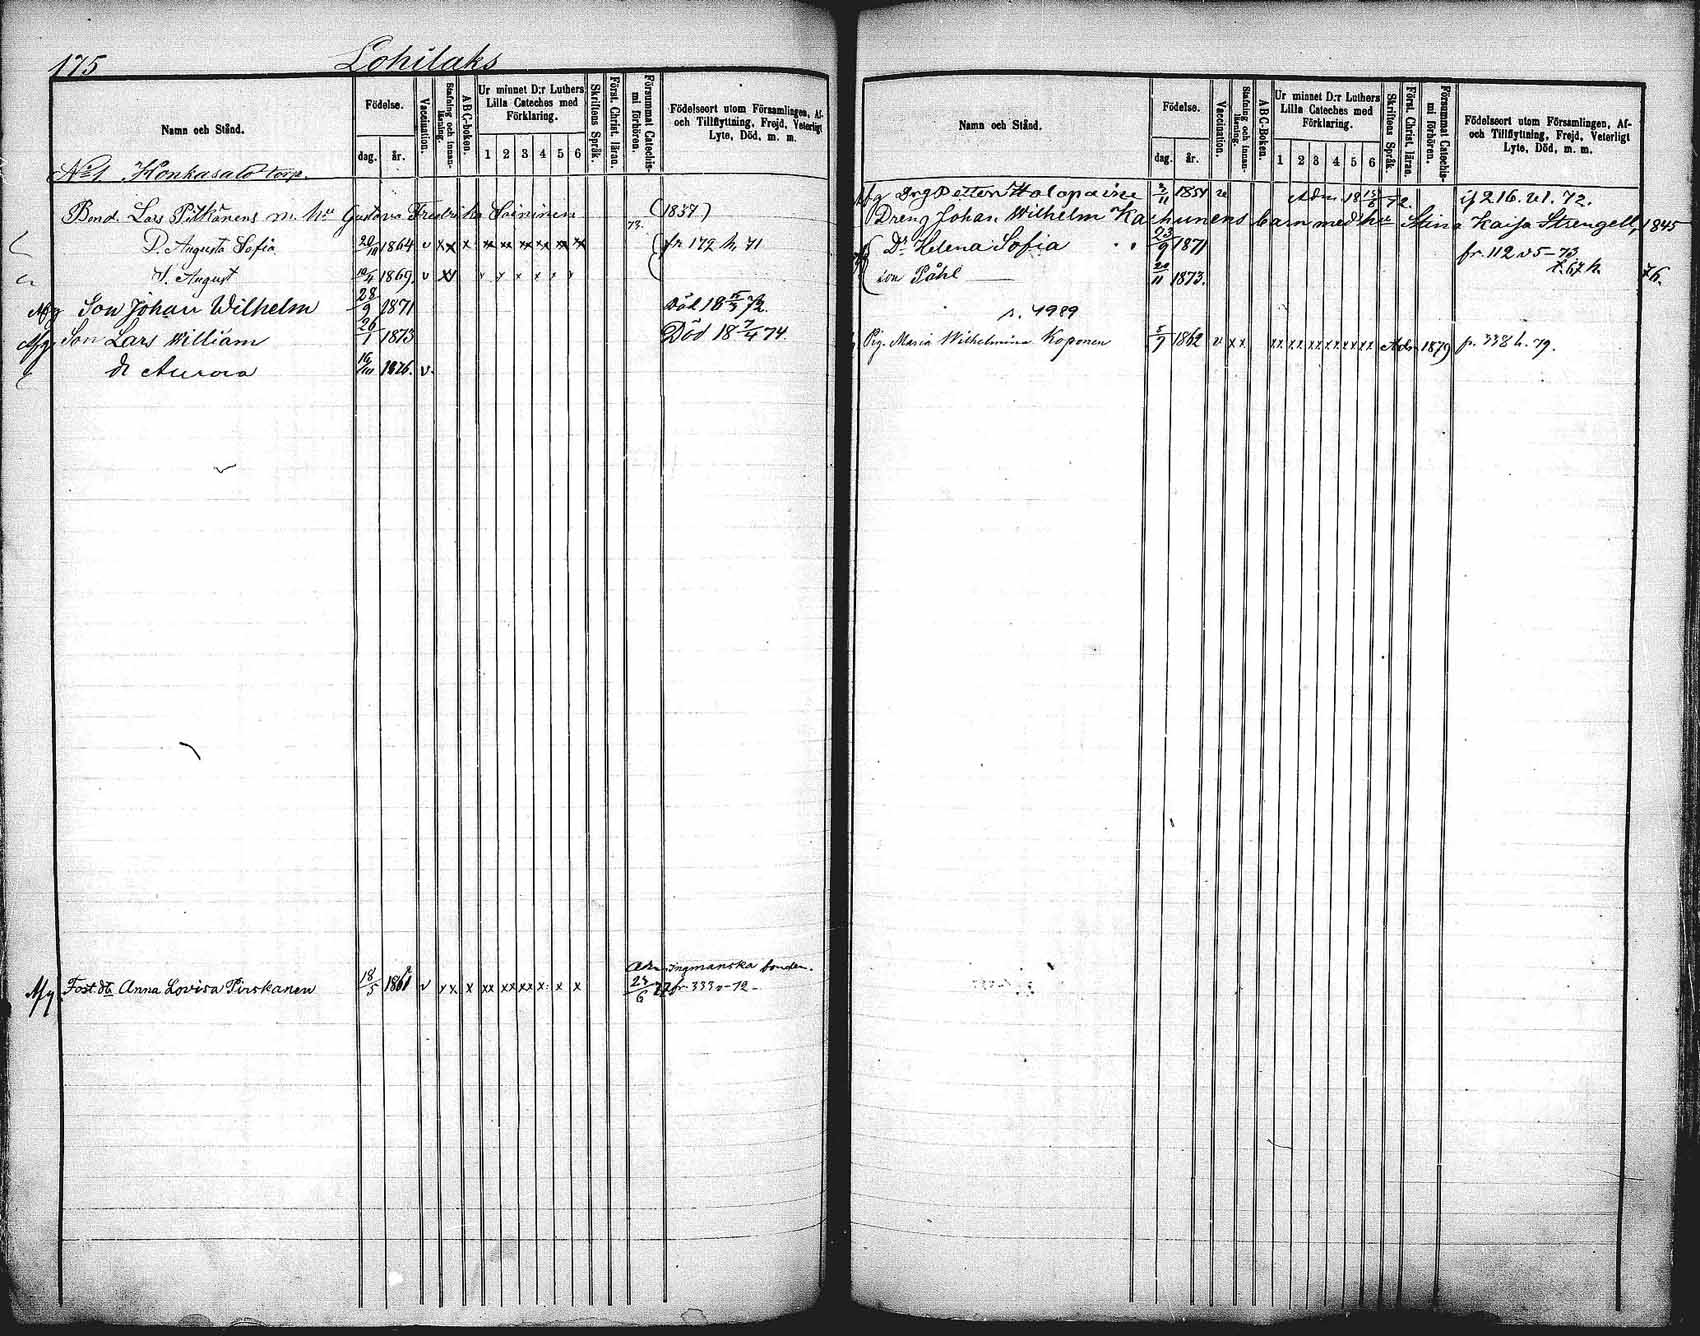 175 Lohilaks
Namn och Stånd.
Födelse.
dag. år.
Vaccination.
Stafning och innanläsning.
ABC-boken.
Ur minnet D:r Luthers Lilla Cateches med Förklaring.
1 2 3 4 5 6
Skriftens Språk.
Först. Christ. läran.
Försummat Catechismi förhören.
Födelseort utom Församlingen, Af- och Tillflyttning, Frejd, Veterligt Lyte, Död, m. m.
No 1 Konkasalo torp.
Bond. Lars Pitkänens m. hu Gustava Fredrika Soininen (1837)
73.
D. Augusta Sofia 20/10 1864 v xx x xx xx xx xx xx xx fr 172 h. 71
S. August 10/4 1869. v xx x x x x x x
Afg Son Johan Wilhelm 28/9 1871 Död 18 72.
Afg Son Lars William 26/1 1873 Död 18 7/4 74.
dr Aurora 1876. v.
Adm. Ingmanska fonden.
Afg Fost. dtr Anna Lovisa Pirskanen 18/5 1861 v xx x xx xx xx x x x 23/6 77 fr. 333 v-72-
Namn och Stånd.
Födelse.
dag. år.
Vaccination.
Stafning och innanläsning.
ABC-Boken.
Ur minnet D:r Luthers Lilla Cateches med Förklaring.
1 2 3 4 5 6
Skriftens Språk.
Först. Christ. läran.
Försummat Catechismi förhören.
Födelseort utom Församlingen, Af- och Tillflyttning, Frejd, Veterligt Lyte, Död, m. m.
Afg Drg Petter Holopainen 1851 v Adm. 18 72. if 216. v1. 72.
Dreng Johan Wilhelm Karhunens barn med hu Stina Kaisa Strengell, 1845
Dr Helena Sofia 23/9 1871 fr. 112 v 5-73
son Påhl 20/11 1873. t. 67 h 76.
s. 1989
Pig. Maria Wilhelmina Koponen 5/7 1862 v xx xx xx xx xx xx xx Adm 1879 fr. 338 h. 79.